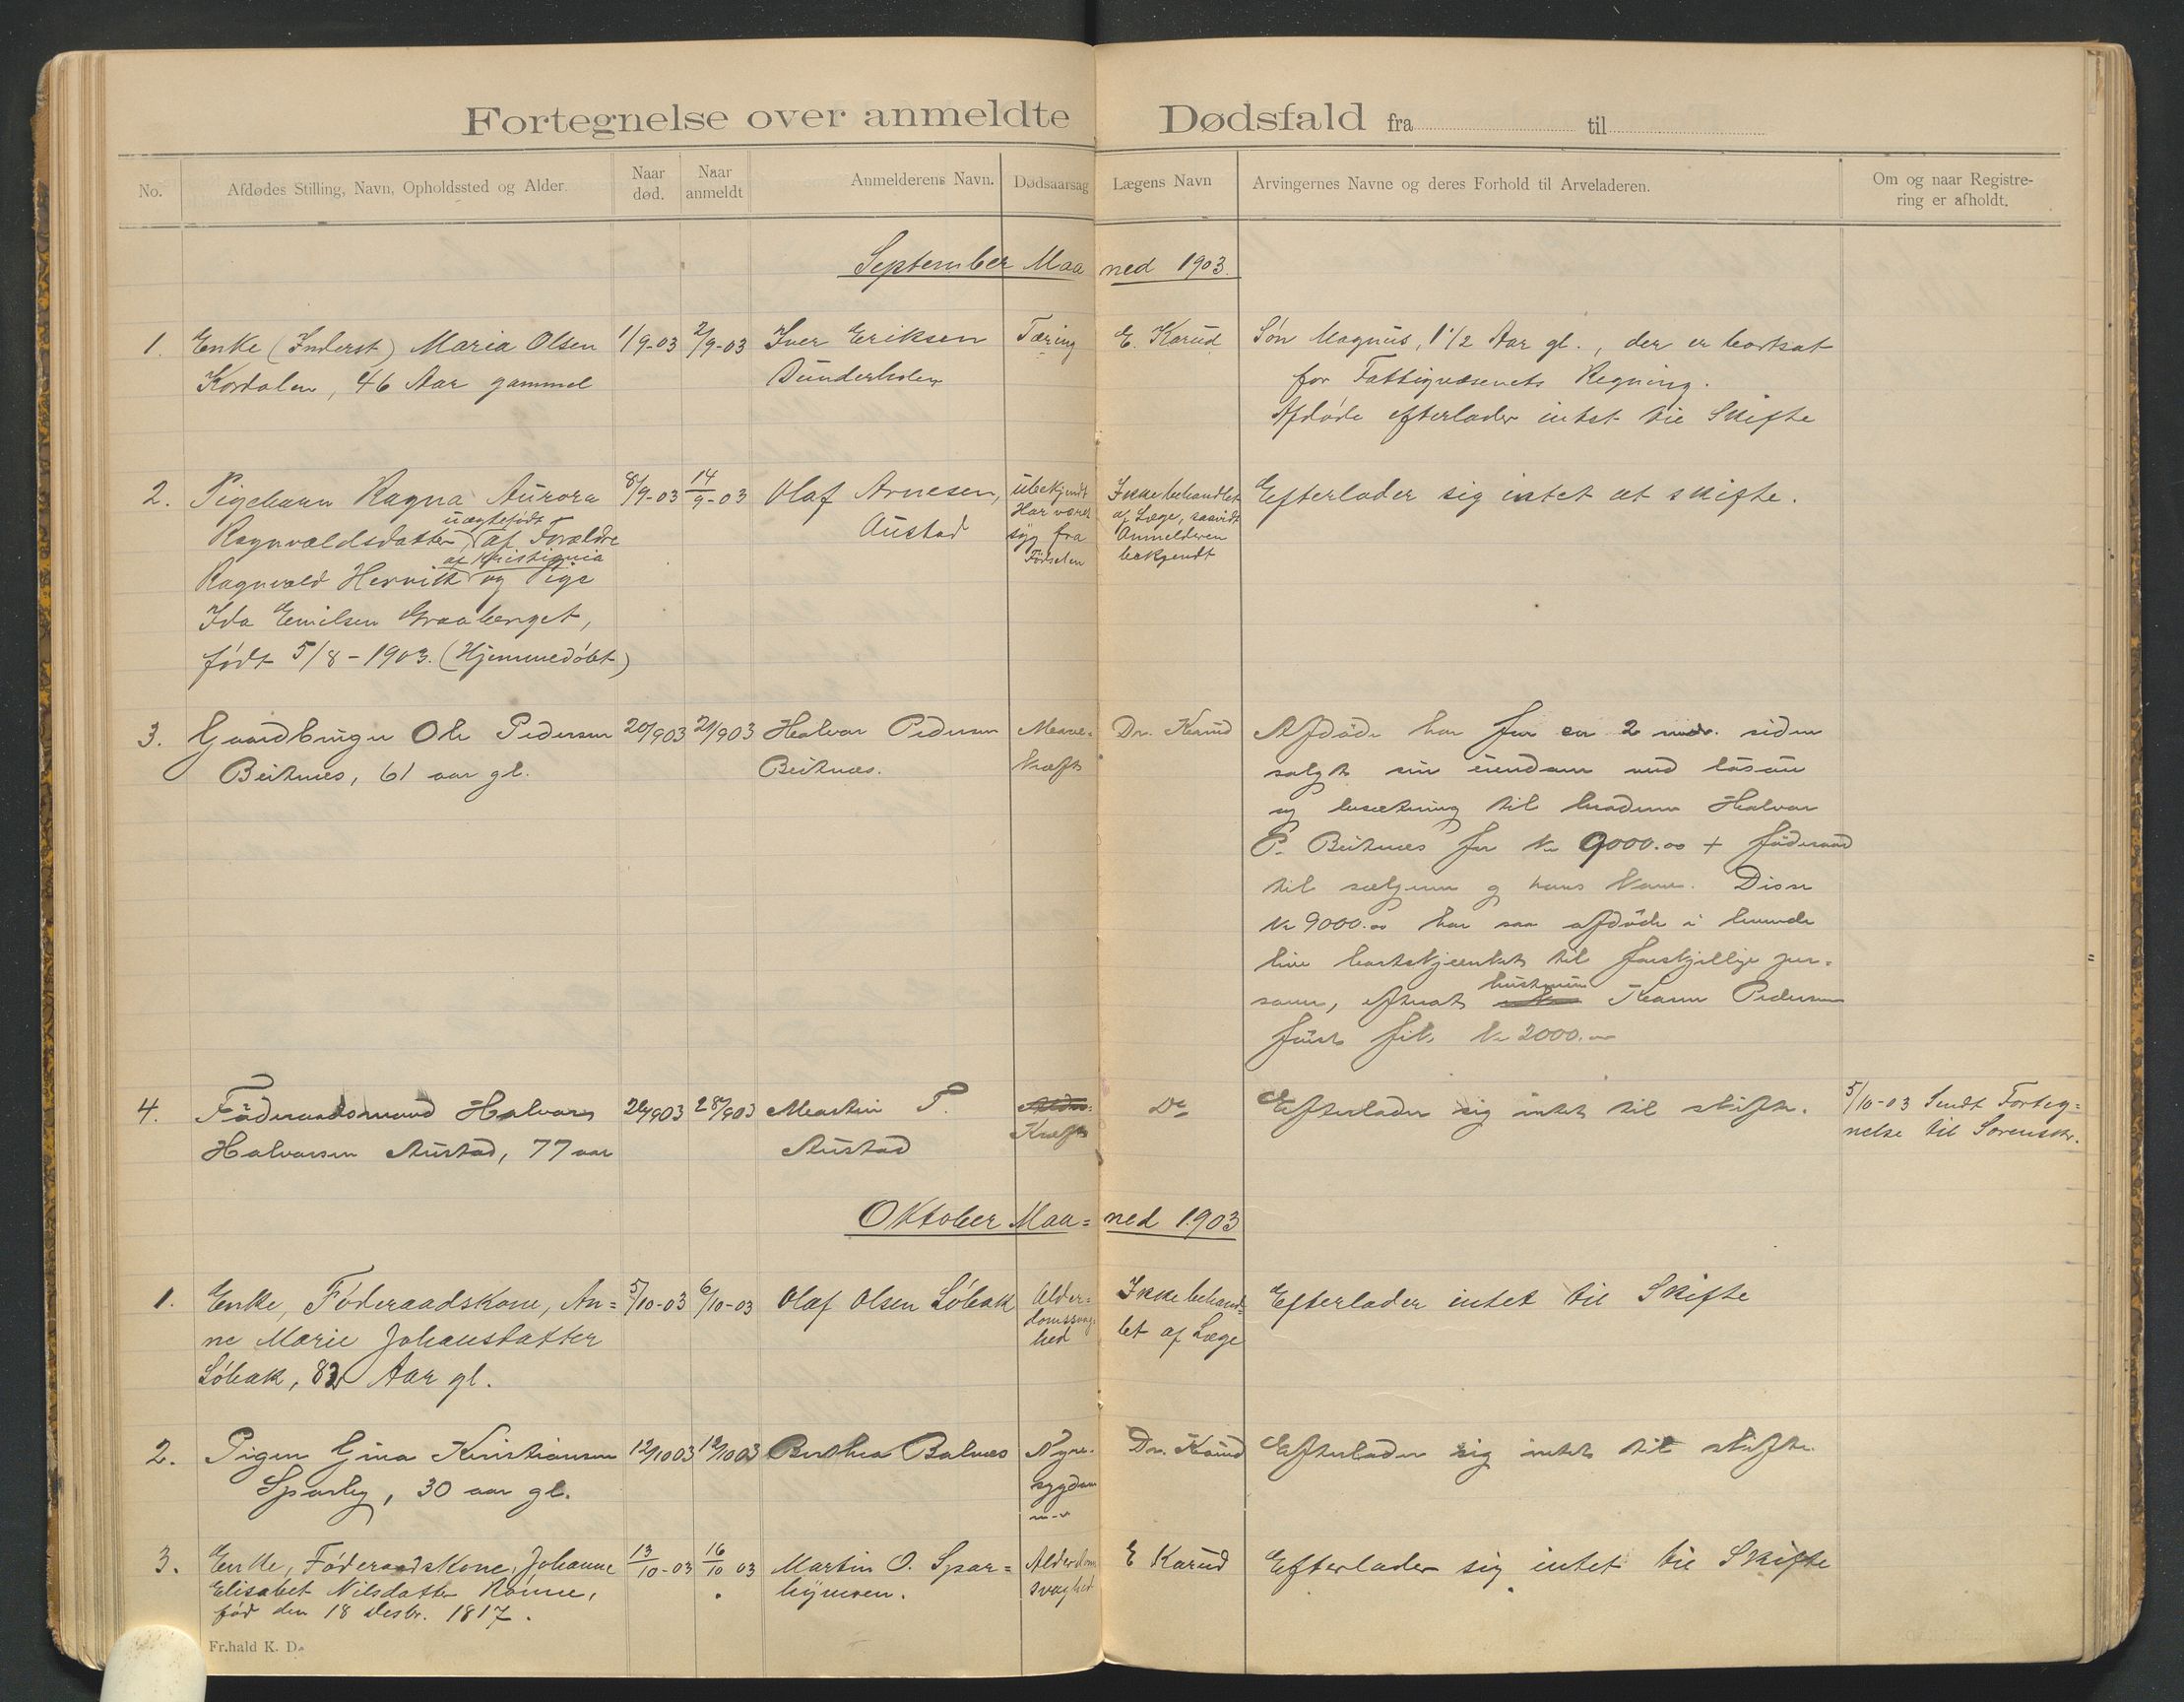 Fortegnelse over anmeldte Dødsfald fra til
No. Afdødes Stilling, Navn, Opholdssted og Alder. Naar død. Naar anmeldt Anmelderens Navn. Dødsaarsag Lægens Navn Arvingernes Navne og deres Forhold til Arveladeren. Om og naar Registrering er afholdt.
September Maaned 1903.
1. Enke (Inderst) Maria Olsen 1/9-03 2/9-03 Iver Eriksen Tæring E. Karud Søn Magnus, 1 1/2 Aar gl., der er bortsat
Kordalen, 46 Aar gammel for Fattigvæsenets Regning.
Afdøde efterlader intet til Skifte
2. Pigebarn Ragna Aurora 8/9-03 14/9-03 Olaf Arnesen, ubekjendt Ikke behandlet Efterlader sig intet at skifte.
Ragnvaldsdatter, uægtefødt af Forældre Austad Har været af Læge, saavidt
Ragnvald Hervik af Kristiania og Pige syg fra Anmelderen
Ida Emilsen Graaberget, Fødselen bekjendt
født 5/8-1903. (Hjemmedøbt)
3. Gaardbruger Ole Pedersen 20/903 21/903 Halvor Pedersen Mave- Dr. Karud Afdøde har for ca 2 mdr. siden
Beitnes, 61 aar gl. Beitnes. kræft solgt sin eiendom med løsøre
og besætning til broderen Halvor
P. Beitnes for kr 9000.00 + føderaad
til sælgeren og hans kone. Disse
kr 9000.00 har saa afdøde i levende
live bortskjænket til forskjellige per-
soner, efterat hustruen Karen Pedersen
først fik kr 2000.00
4. Føderaadsmand Halvor 28/903 Martin P. Kræft Do Efterlader sig intet til skifte. 5/10-03 Sendt Forteg-
Halvorsen Austad, 77 aar Austad nelse til Sorenskr.
Oktober Maa- ned 1903
1. Enke, Føderaadskone, An- 5/10-03 6/10-03 Olaf Olsen Løbak Alder- Ikke behand- Efterlader intet til Skifte
ne Marie Johansdatter domssvag- let af Læge
Løbak, 82 Aar gl. hed
2. Pigen Gina Kristiansen 12/1003 12/1003 Berthea Balnes Nyre- Dr. Karud Efterlader sig intet til skifte.
Sparby, 30 aar gl. sygdom
m.v
3. Enke, Føderaadskone, Johanne 13/10-03 16/10 03 Martin O. Spar- Alderdoms E Karud Efterlader sig intet til Skifte
Elisabet Nilsdatter Rønne, svaghed
fød den 18 Desbr. 1817.
Fr.hald K. D.